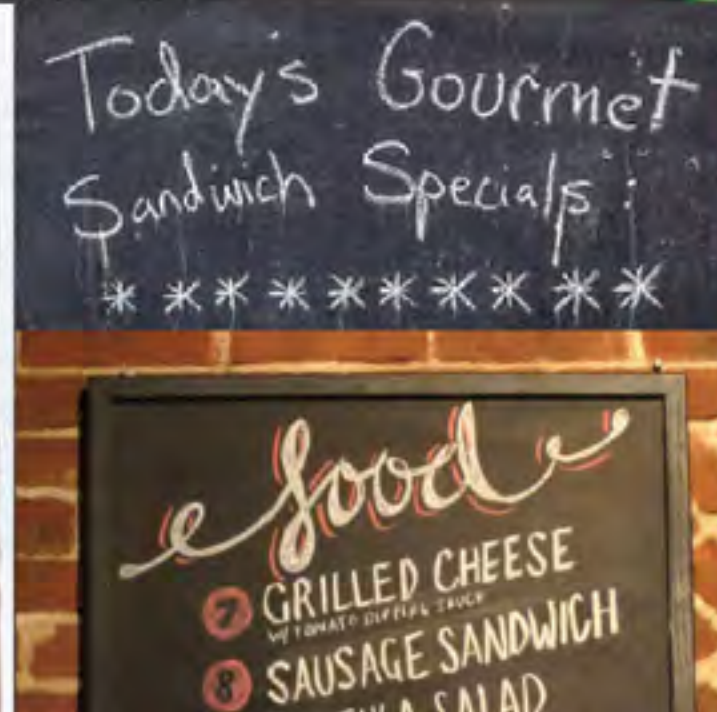 Today's Gourmet
Sandwich Specials:
* * * * * * * * * *
food
7 GRILLED CHEESE
W/ TOMATO DIPPING SAUCE
8 SAUSAGE SANDWICH
SALAD